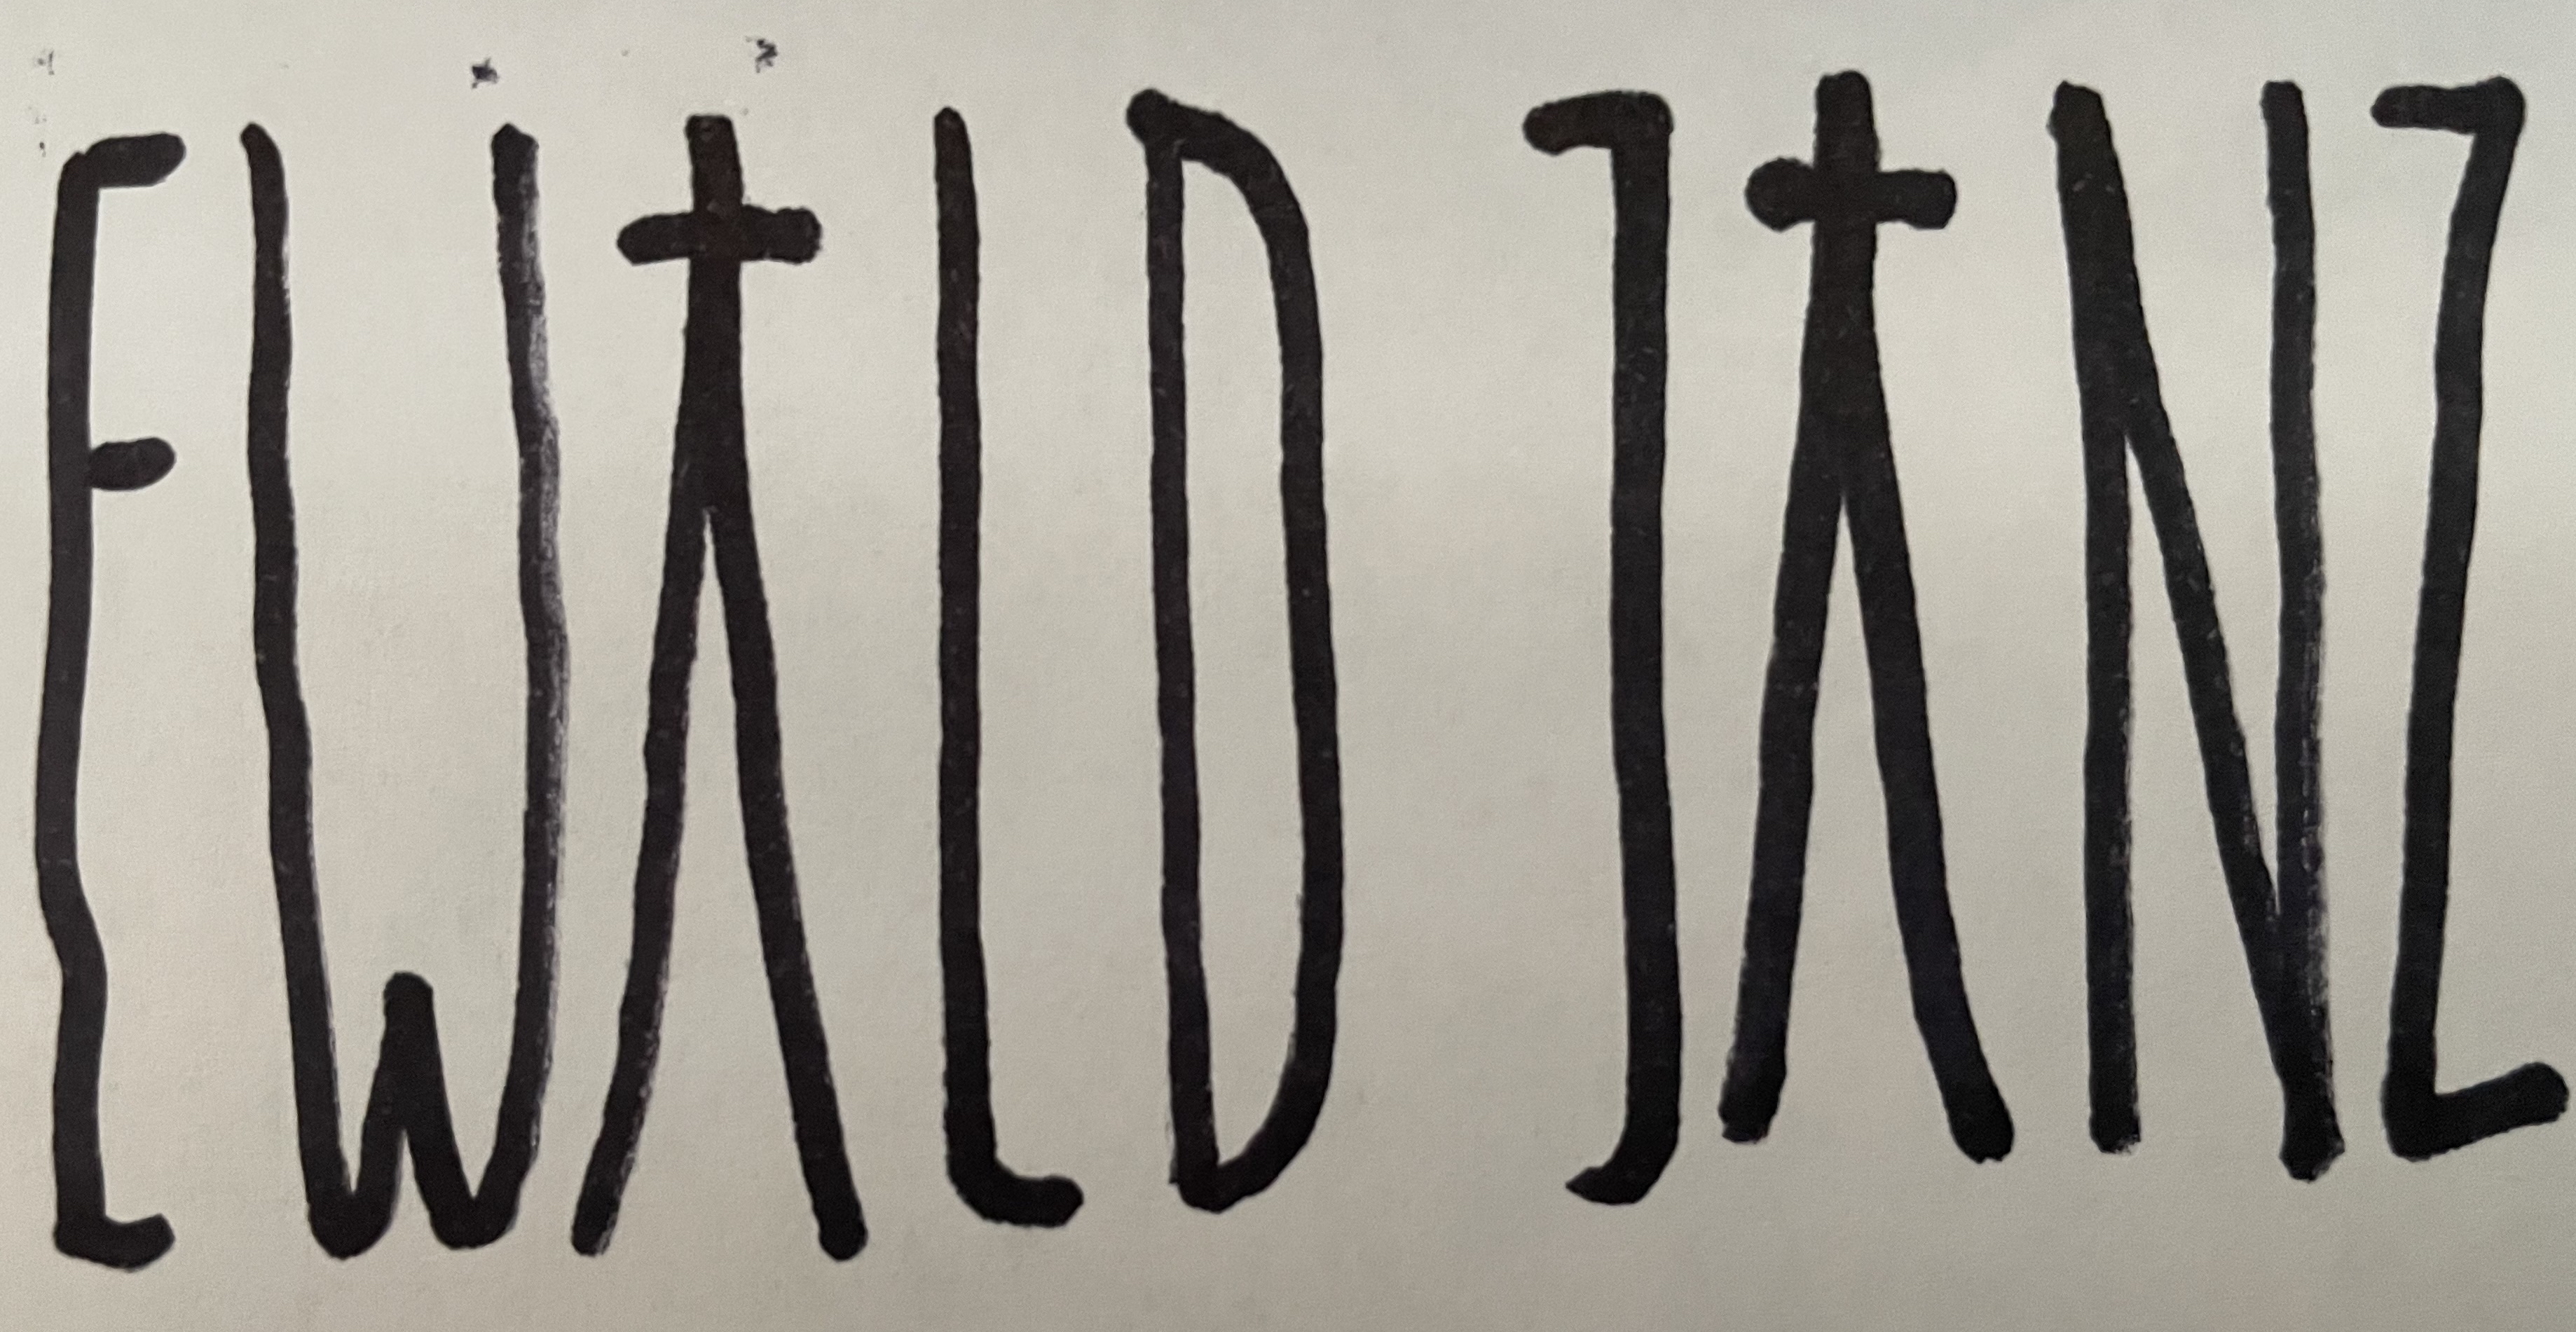 EWALD JANZ